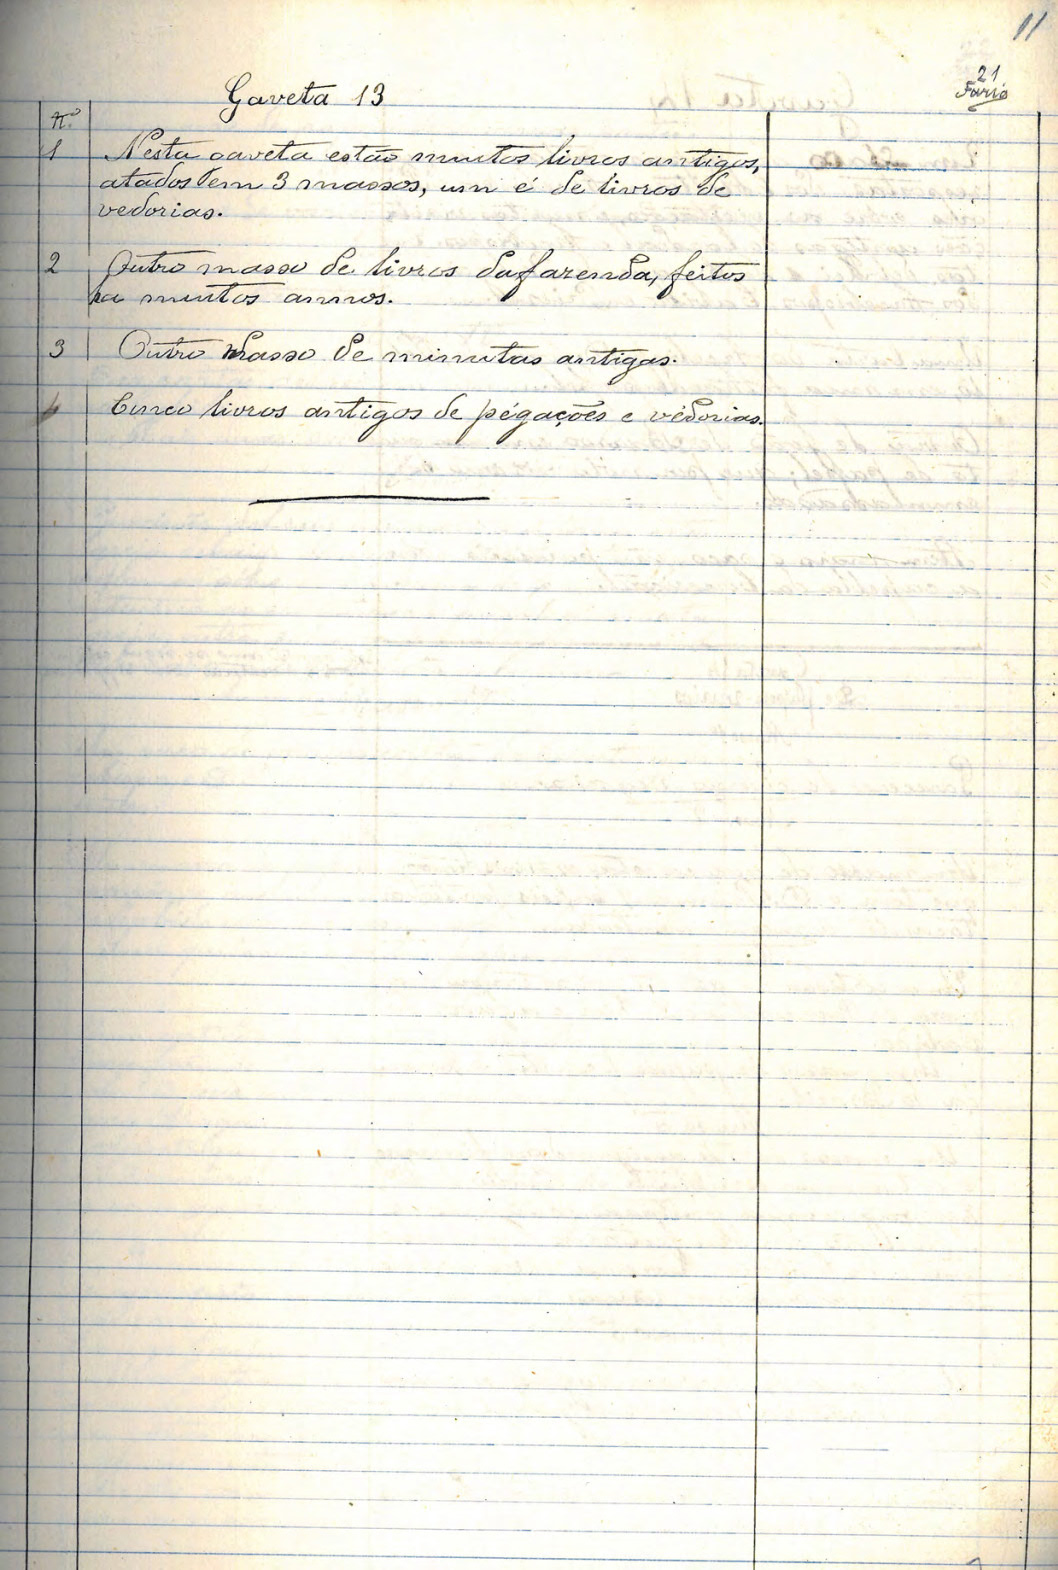 11
21
Faria
Gaveta 13
N.º
1 Nesta gaveta estão muntos livros antigos,
atados em 3 massos, um é de livros de
vedorias.
2 Outro masso de livros da fazenda, feitos
ha muntos annos.
3 Outro Masso de minutas antigas.
4 Cinco livros antigos de pégações e védorias.